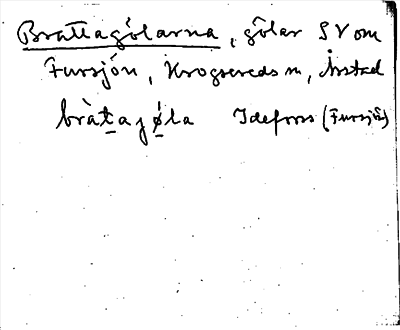 Brattagölarna, gölar SV om
Fursjön, Krogsereds sn, Årstad
bràtagǿla Idefors (Fursjö)